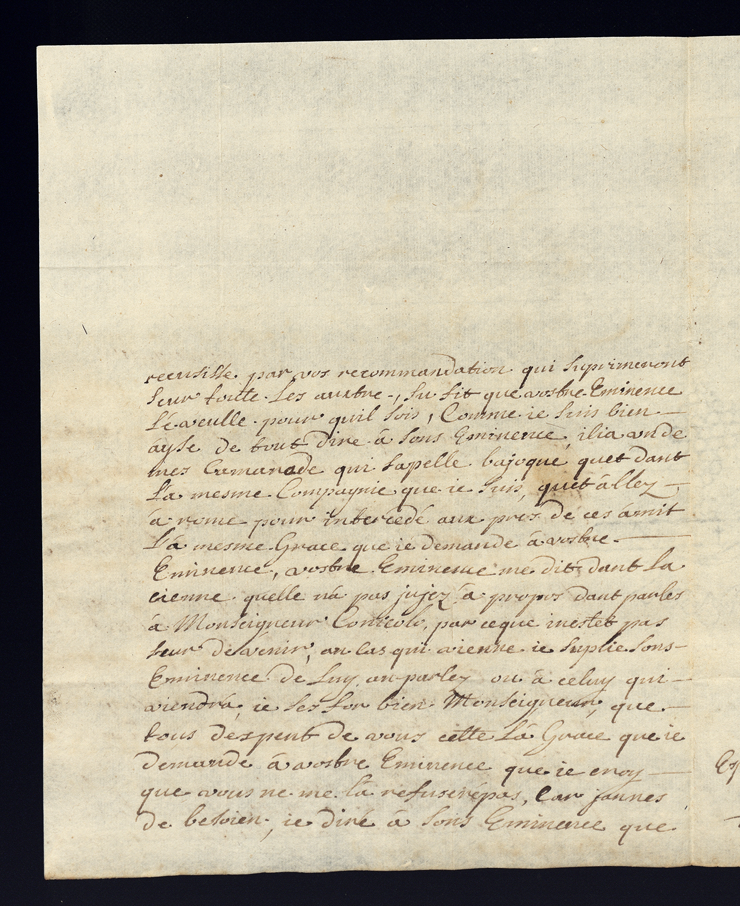 recusisse par vos recommandation qui suprimeront
leur toutte les austre, su fit que vostre Eminence
lé veulle pour quil sois, Comme ie suis bien
ayse de tout dire à sons Eminence, ilia un de
mes Camarade qui sapelle bajoque quet dant
la mesme Compagnie que ie suis, quet allez
à rome pour intercedé aux pres de ces amit
la mesme Grace que ie demande à vostre
Eminence, vostre Eminence me dit dant la
cienne quelle na pas jujez à propos dant parles
à Monseigneur Conicoli, par ceque inestet pas
seur de venir, an cas qui vienne ie suplie sons
Eminence de luy an parlez ou à celuy qui
viendra, ie ses for bien Monseigneur, que
tous despent de vous cette la Grace que ie
demande à vostre Eminence que ie croy
que vous ne me la refuserépas, Car jannes
de besoien, ie diré à sons Eminence que